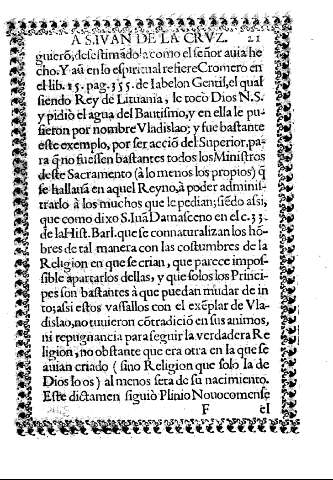 A S. IVAN DE LA CRVZ. 21
guierõ, desestimãdola como el señor auia he
cho. Y aũ en lo espiritual refiere Cromero en
el lib. 15. pag. 355. de Iabelon Gentil, el qual
siendo Rey de Lituania, le tocò Dios N. S.
y pidiò el agua del Bautismo, y en ella le pu-
sieron por nombre Vladislao; y fue bastante
este exemplo, por ser acciõ del Superior, pa-
ra q̃ no fuessen bastantes todos los Ministros
deste Sacramento (à lo menos los propios) q̃
se hallauã en aquel Reyno, à poder adminis-
trarlo à los muchos que le pedian; siẽdo assi,
que como dixo S. Iuã Damasceno en el c. 33.
de la Hist. Barl. que se connaturalizan los hõ-
bres de tal manera con las costumbres de la
Religion en que se crian, que parece impos-
sible apartarlos dellas, y que solos los Princi-
pes son bastantes à que puedan mudar de in
to; assi estos vassallos con el exẽplar de Vla-
dislao, no tuuieron cõtradiciõ en sus animos,
ni repugnancia para seguir la verdadera Re
ligion, no obstante que era otra en la que se
auian criado (sino Religion que solo la de
Dios lo es) al menos seta de su nacimiento.
Este dictamen siguiò Plinio Nouocomense
F el